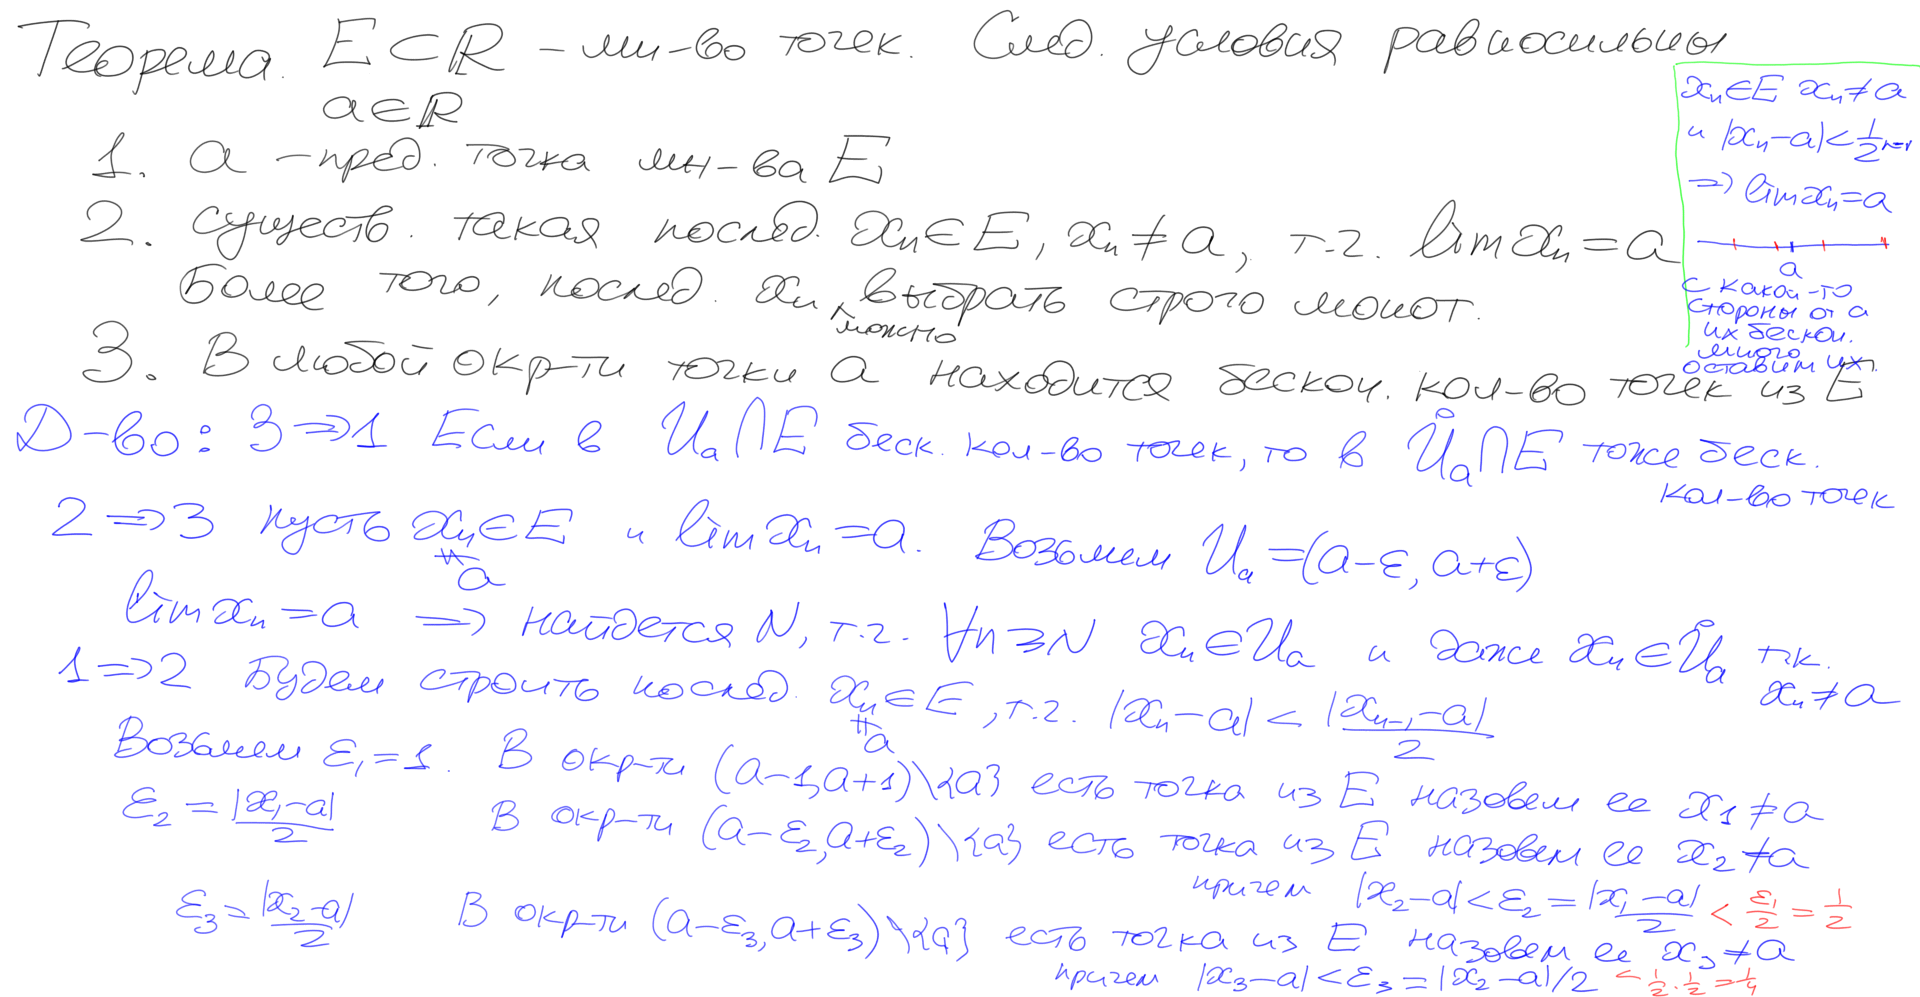 Теорема. E⊂ℝ – мн-во точек. След. условия равносильны
a∈ℝ
1. a – пред. точка мн-ва E
2. существ. такая послед. xₙ∈E, xₙ≠a, т.ч. lim xₙ = a
Более того, послед. xₙ можно выбрать строго монот.
3. В любой окр-ти точки a находится бескон. кол-во точек из E
xₙ∈E xₙ≠a
и |xₙ-a|<1/2ⁿ⁻¹
=> lim xₙ=a
a
с какой-то
стороны от a
их бескон.
много
оставим их.
Д-во: 3=>1 Если в Uₐ∩E беск. кол-во точек, то в Ůₐ∩E тоже беск.
кол-во точек
2=>3 пусть xₙ∈E и lim xₙ = a. Возьмем Uₐ=(a-ε, a+ε)
≠
a
lim xₙ = a => найдется N, т.ч. ∀n≥N xₙ∈Uₐ и даже xₙ∈Ůₐ т.к.
xₙ≠a
1=>2 Будем строить послед. xₙ∈E, т.ч. |xₙ-a| < |xₙ₋₁-a|/2
≠
a
Возьмем ε₁=1. В окр-ти (a-1,a+1)\{a} есть точка из E назовем ее x₁≠a
ε₂ = |x₁-a|/2 В окр-ти (a-ε₂,a+ε₂)\{a} есть точка из E назовем ее x₂≠a
причем |x₂-a|<ε₂=|x₁-a|/2 < ε₁/2 = 1/2
ε₃=|x₂-a|/2 В окр-ти (a-ε₃,a+ε₃)\{a} есть точка из E назовем ее x₃≠a
причем |x₃-a|<ε₃=|x₂-a|/2 < 1/2·1/2=1/4